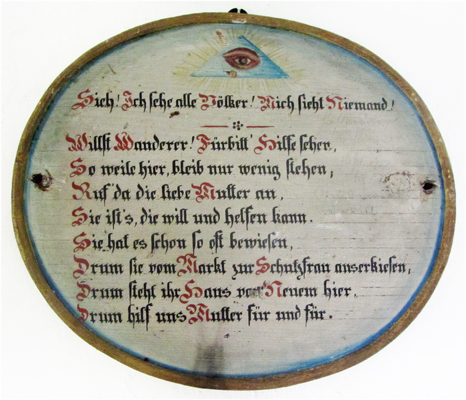 Sieh! Ich sehe alle Völker! Mich sieht Niemand!
Willst Wanderer! Fürbitt' Hilfe sehen,
So weile hier, bleib nur wenig stehen;
Ruf' da die liebe Mutter an,
Sie ist's, die will und helfen kann.
Sie hat es schon so oft bewiesen,
Drum sie vom Markt zur Schutzfrau auserkiesen,
Drum steht ihr Haus von Neuem hier,
Drum hilf uns Mutter für und für.